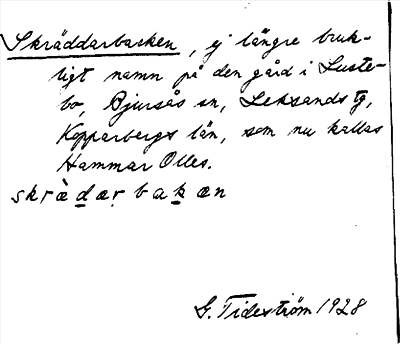 Skräddarbacken, ej längre bruk-
ligt namn på den gård i Luste-
bo, Bjursås sn, Leksands tg,
Kopparbergs län, som nu kallas
Hammar Olles.
skrὲdær bakæn
G. Tideström 1928